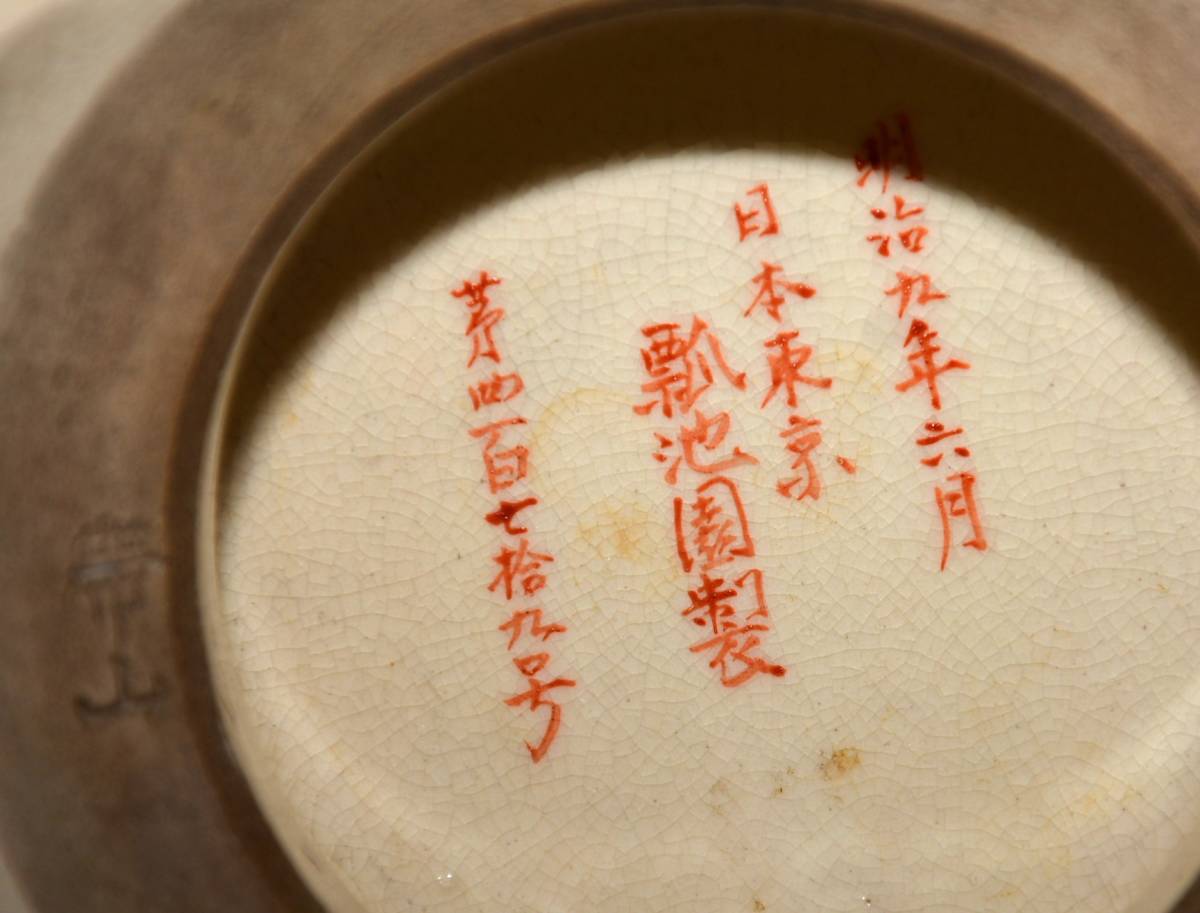 明治九年六月
日本東京
瓢池園製
茅四百七拾九号